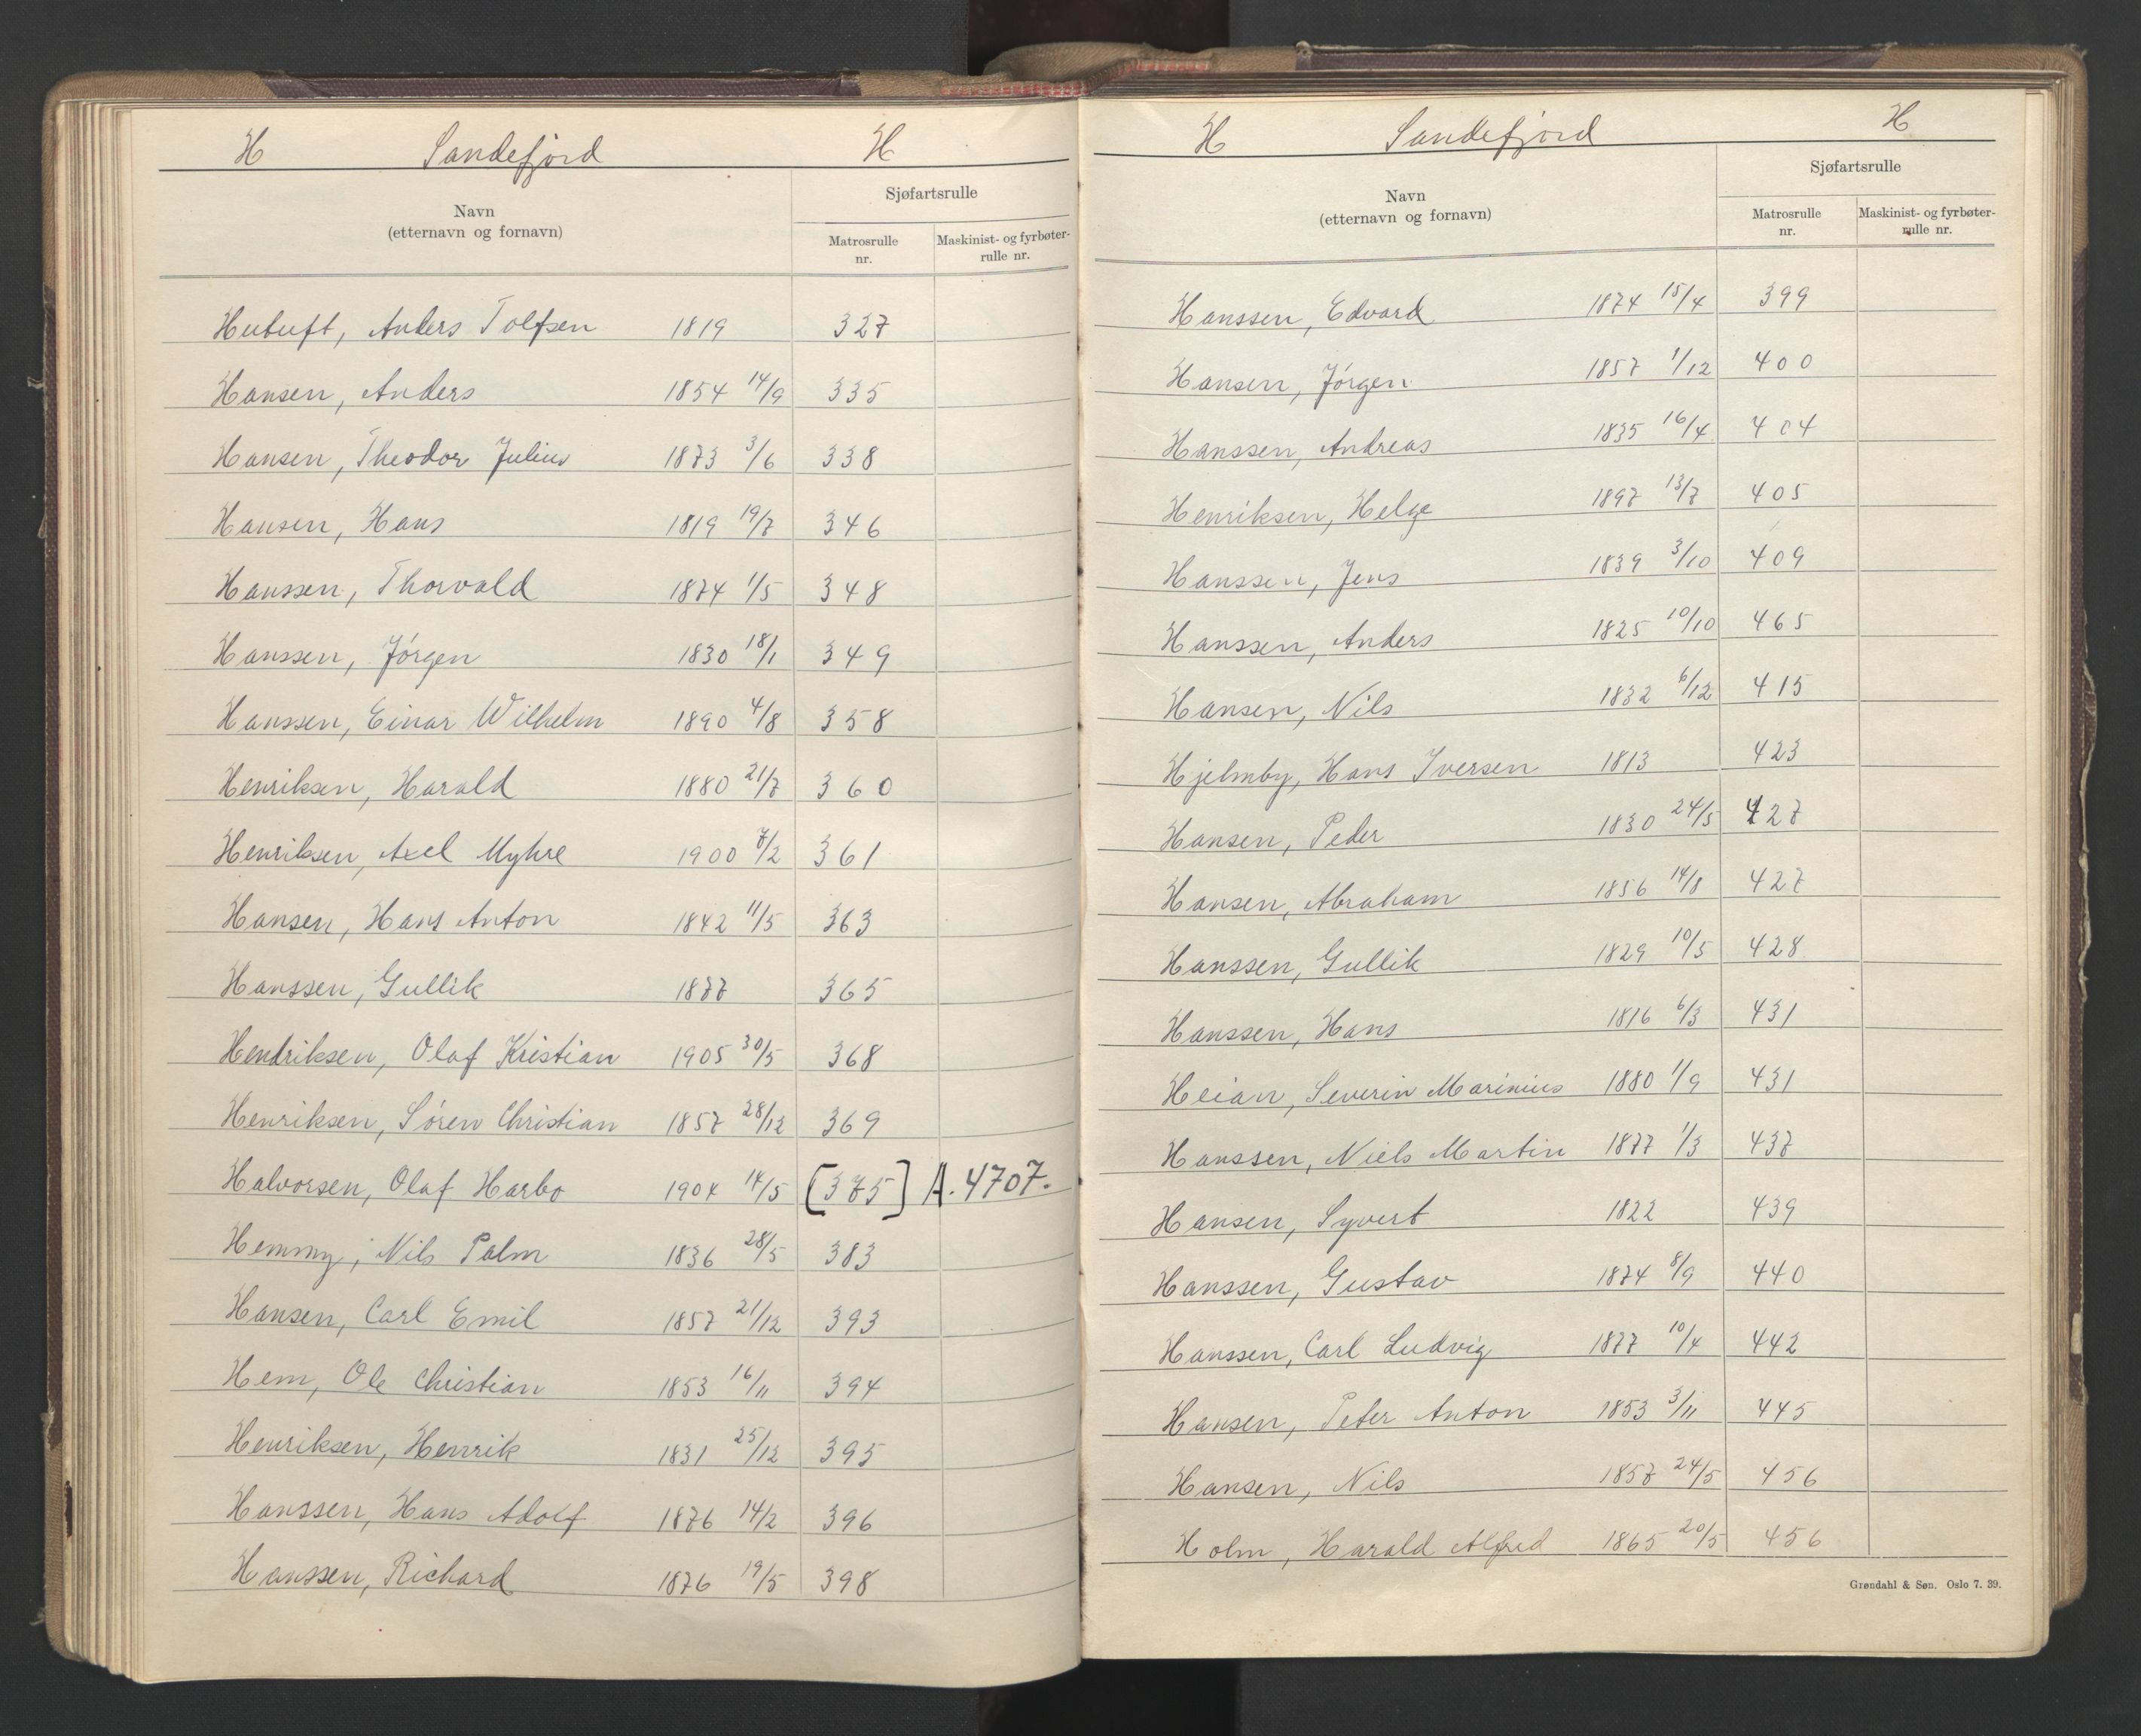 H Sandefjord H
Navn
(etternavn og fornavn)
Sjøfartsrulle
Matrosrulle
nr.
Maskinist- og fyrbøter-
rulle nr.
Anders 1819 327
Hansen, Anders 1854 14/9 335
Hansen, Theodor Julius 1873 3/6 338
Hansen, Hans 1819 19/7 346
Hanssen, Thorvald 1874 1/5 348
Hanssen, Jörgen 1830 18/1 349
Hanssen, Einar Wilhelm 1890 4/8 358
Henriksen, Harald 1880 21/7 360
Henriksen, Axel Myhre 1900 7/2 361
Hansen, Hans Anton 1842 11/5 363
Hanssen, Gullik 1877 365
Hendriksen, Olaf Kristian 1905 30/5 368
Henriksen, Sören Christian 1857 28/12 369
Halvorsen, Olaf Harbo 1904 14/5 [375] A. 4707.
Hemmy, Nils Palm 1836 28/5 383
Hansen, Carl Emil 1857 21/12 393
Hem, Ole Christian 1853 16/11 394
Henriksen, Henrik 1831 25/12 395
Hanssen, Hans Adolf 1876 14/2 396
Hanssen, Richard 1876 19/5 398
H Sandefjord H
Navn
(etternavn og fornavn)
Sjøfartsrulle
Matrosrulle
nr.
Maskinist- og fyrbøter-
rulle nr.
Hanssen, Edvard 1874 15/4 399
Hansen, Jörgen 1857 1/12 400
Hanssen, Andreas 1835 16/4 404
Henriksen, Helge 1897 13/7 405
Hanssen, Jens 1839 3/10 409
Hanssen, Anders 1825 10/10 465
Hansen, Nils 1832 6/12 415
Hjelmby, Hans Iversen 1813 423
Hansen, Peder 1830 24/5 427
Hansen, Abraham 1856 14/8 427
Hanssen, Gullik 1829 10/5 428
Hanssen, Hans 1816 6/3 431
Heian, Severin Marinius 1880 1/9 431
Hanssen, Niels Martin 1877 1/3 437
Hansen, Syvert 1822 439
Hanssen, Gustav 1874 8/9 440
Hanssen, Carl Ludvig 1877 10/4 442
Hansen, Peter Anton 1853 3/11 445
Hansen, Nils 1857 24/5 456
Holm, Harald Alfred 1865 20/5 456
Grøndahl & Søn. Oslo 7. 39.